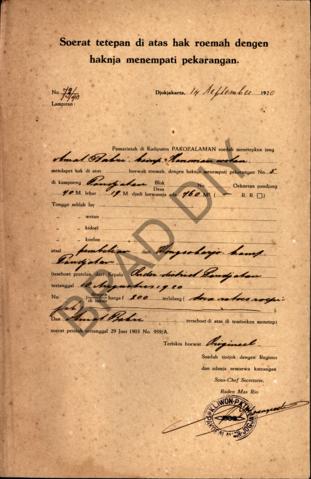 Soerat tetepan di atas hak roemah dengen
haknja menempati pekarangan.
No. 72/1940
Djokjakarta, 14 September 1920
Lampiran :
Pemarintah di Kadipaten PAKOEALAMAN soedah menetepken jang
Amat Bakri kamp. Kauman wetan
mendapet hak di atas hoewak roemah, dengen haknja menempati pekarangan No 5
di kampoeng Pandjatan Blok Desa No Oekoeran pandjang
40 M. lebar 19 M. djadi loewasnja 760 M. R. R.
Tangga sebelah lor
wetan
kidoel
koelon
atsal pembelian kamp.
Pandjatan
terseboet pratelan dari Kepala Onder district Pandjatan
tertanggal 16 Augustus 1920
No harga f 200 terbilang doea ratoes roepi
Dan Amat Bakri terseboet di atas di wadjibken menetepi
soerat prentah tertanggal 29 Juni 1903 No. 959/A.
Tertoelis hoeroef Origineel
Soedah tjotjok dengen Register
dan adanja semoewa katrangan
Sous-Chef Secretarie,
Raden Mas Rio
BPAD DIY